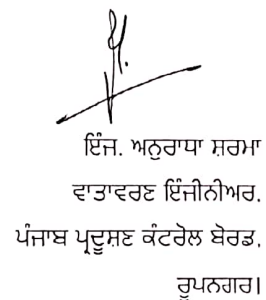 ਇੰਜ. ਅਨੁਰਾਧਾ ਸ਼ਰਮਾ
ਵਾਤਾਵਰਣ ਇੰਜੀਨੀਅਰ.
ਪੰਜਾਬ ਪ੍ਰਦੂਸ਼ਣ ਕੰਟਰੋਲ ਬੋਰਡ.
ਰੂਪਨਗਰ।